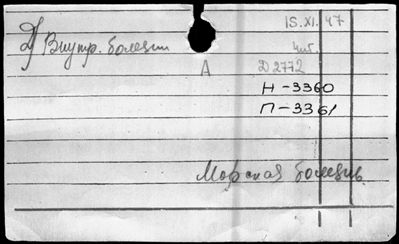 Внутр. болезни
15.XI.47
чит.
А
Д 2772
Н-3360
П-3361
Морская болезнь